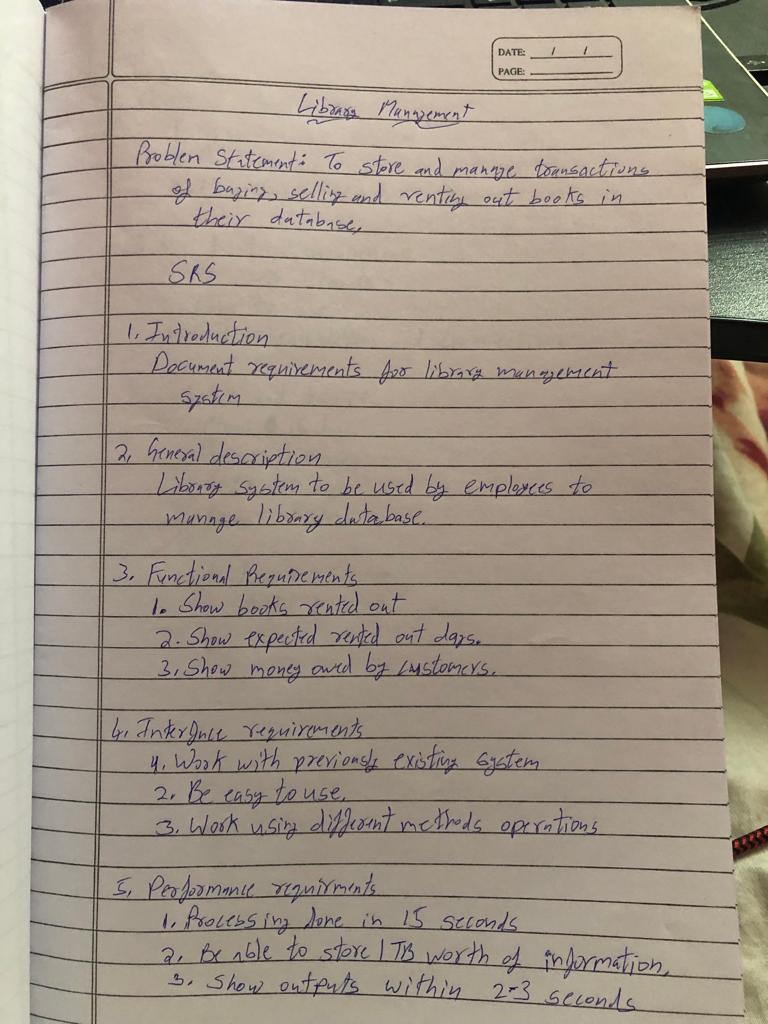 DATE: / /
PAGE:
Library Management
Problem Statement: To store and manage transactions
of buying, selling and renting out books in
their database.
SRS
1. Introduction
Document requirements for library management
system
2. General description
Library system to be used by employees to
manage library database.
3. Functional Requirements
1. Show books rented out
2. Show expected rented out days.
3. Show money owed by customers.
4. Interface requirements
1. Work with previously existing system
2. Be easy to use.
3. Work using different methods operations
5. Performance requirments
1. Processing done in 15 seconds
2. Be able to store 1 TB worth of information.
3. Show outputs within 2-3 seconds